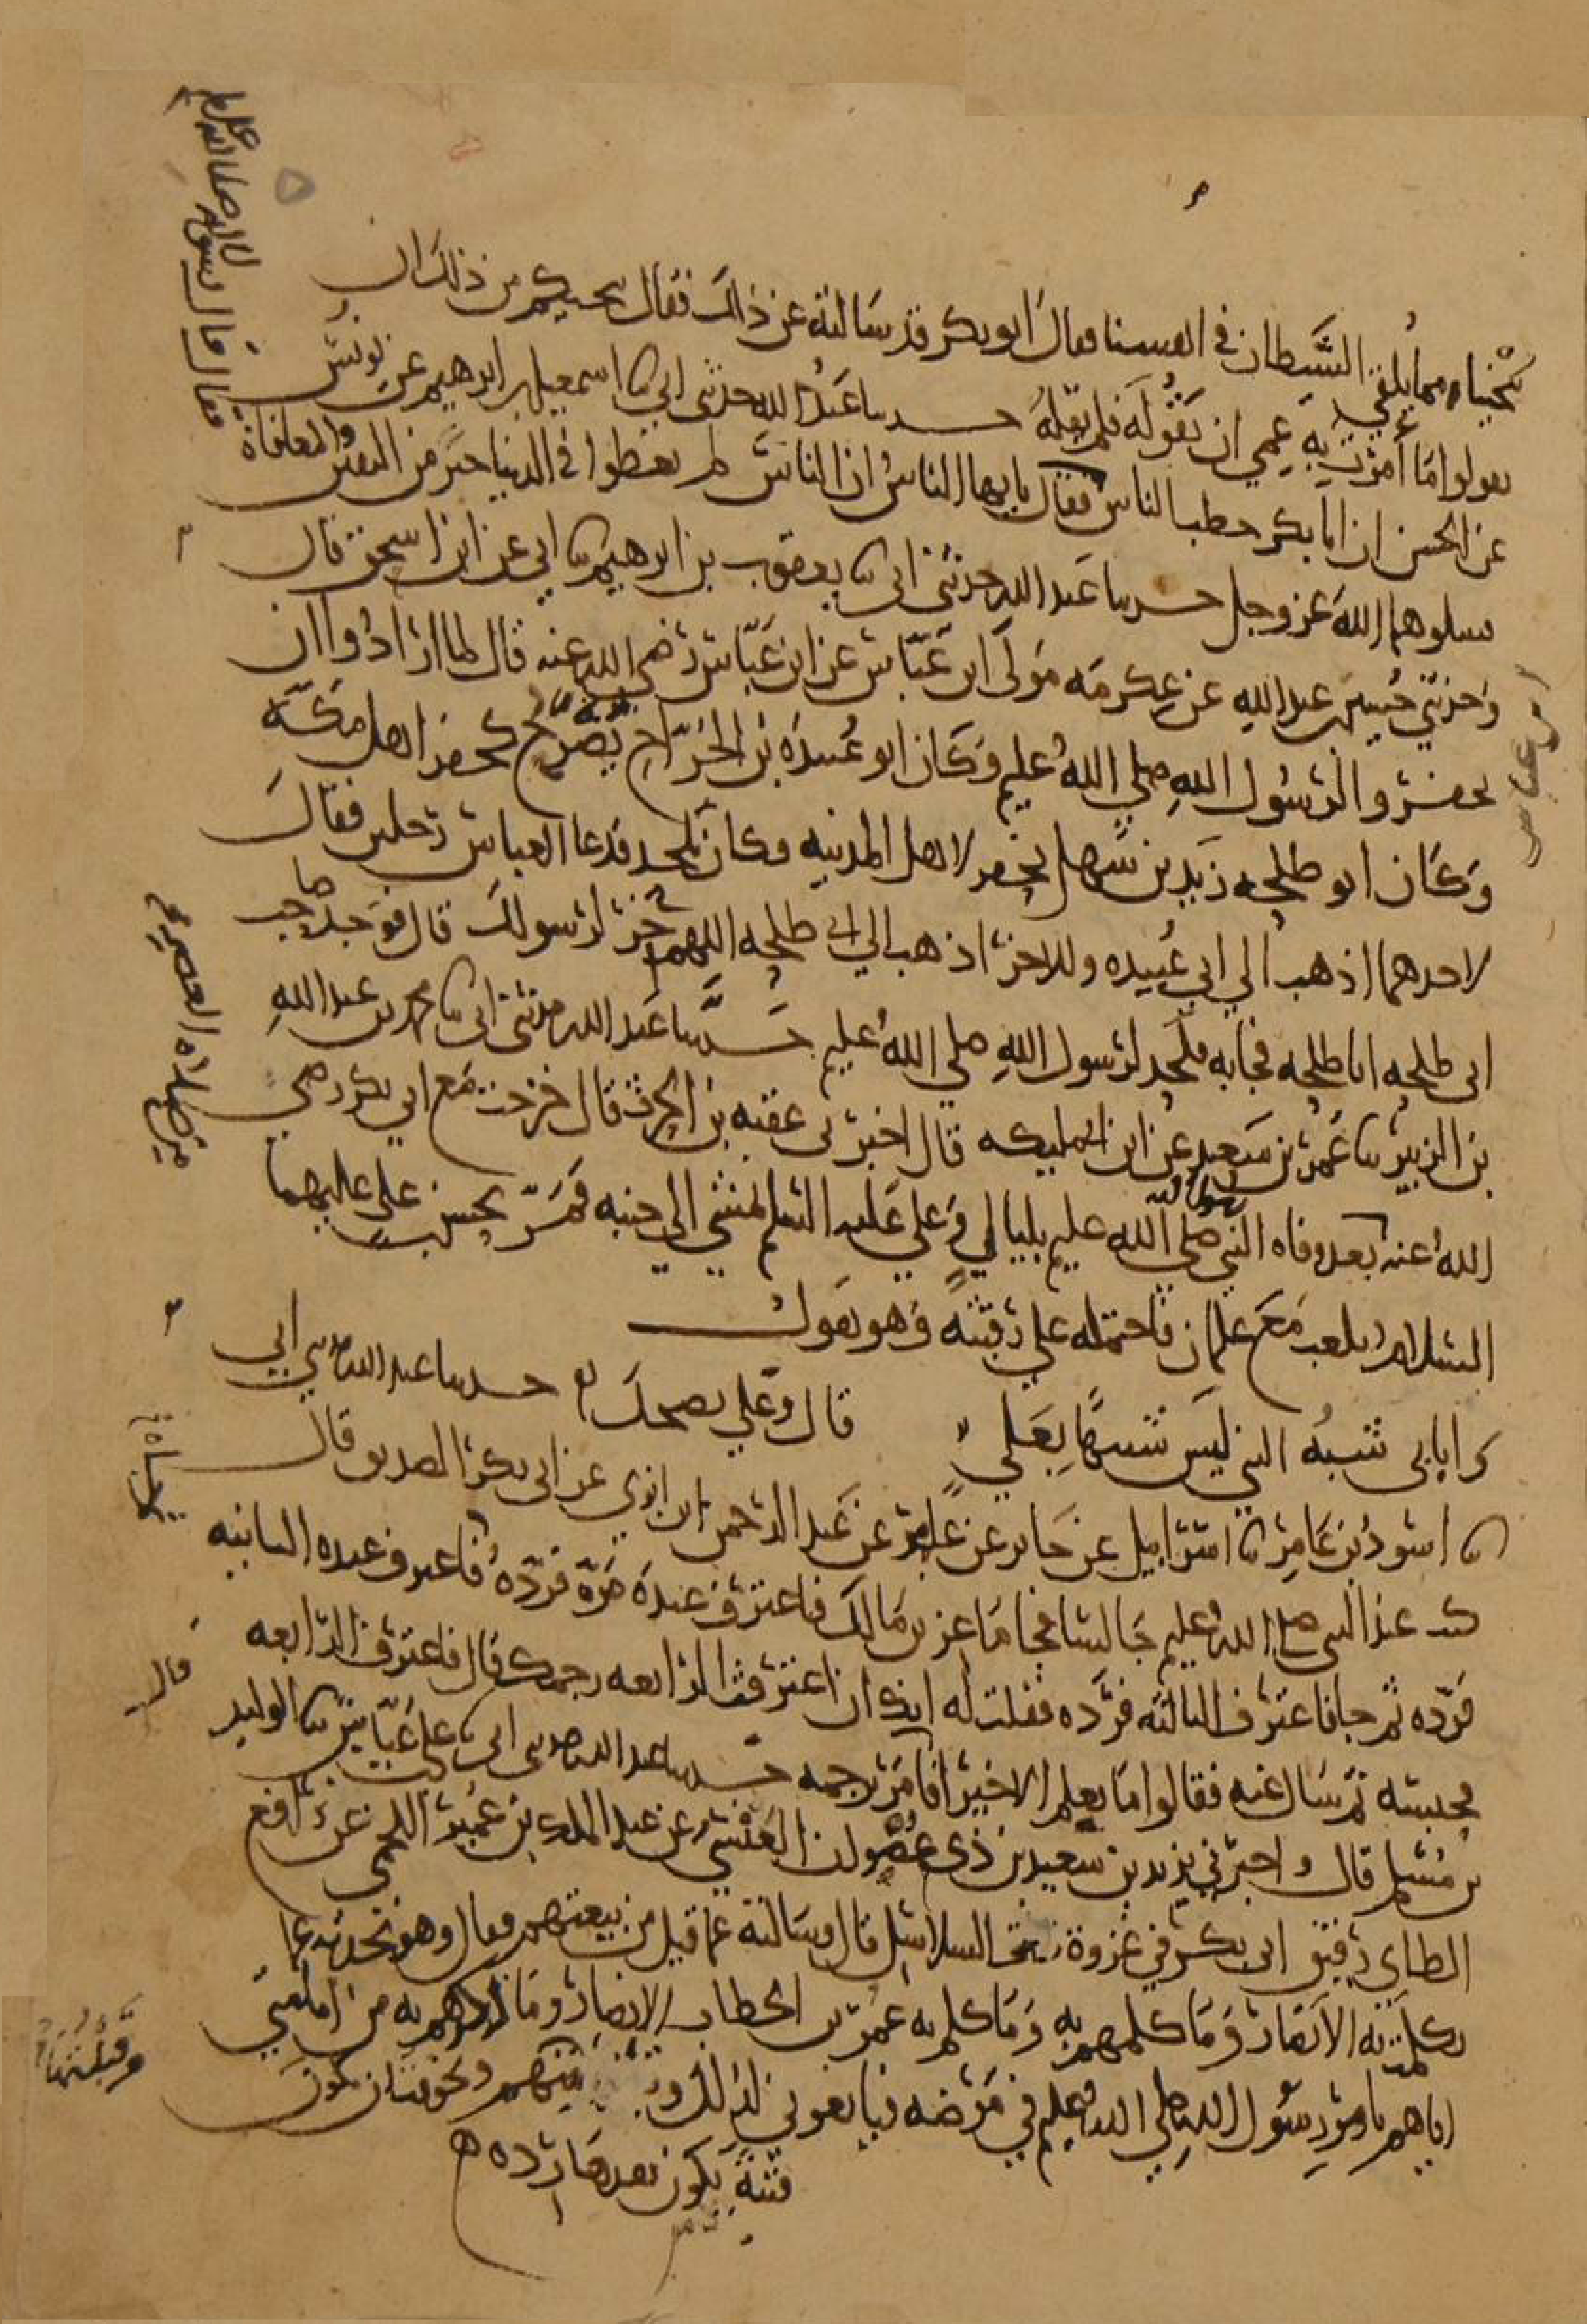 ينجينا مما يلقي الشيطان في انفسنا فقال ابو بكر قد سالته عن ذلك فقال ينجيكم من ذلك ان
تقولوا ما أمرت به عمي ان يقوله فلم يقله حدثنا عبد الله حدثني ابي ثنا اسمعيل بن ابرهيم عن يونس
عن الحسن ان ابا بكر خطب الناس فقال يا ايها الناس ان الناس لم يعطوا في الدنيا خير من اليقين والمعافاة
فسلوهما الله عز وجل حدثنا عبد الله حدثني ابي ثنا يعقوب بن ابرهيم ثنا ابي عن ابن اسحق قال
وحدثني حسين بن عبد الله عن عكرمه مولى ابن عباس عن ابن عباس رضي الله عنه قال لما ارادوا ان
يحفروا لرسول الله صلي الله عليه وكان ابو عبيدة بن الجراح يضرح كحفر اهل مكة
وكان ابو طلحه زيد بن سهل يحفر لاهل المدينه وكان يلحد فدعا العباس رجلين فقال
لاحدهما اذهب الي ابي عبيده وللاخر اذهب الي ابي طلحه اللهم خر لرسولك قال فوجد صاحب
ابي طلحه ابا طلحه فجا به فلحد لرسول الله صلي الله عليه حدثنا عبد الله حدثني ابي ثنا محمد بن عبد الله
بن الزبير ثنا عمر بن سعيد عن ابن ابي مليكه قال اخبرني عقبه بن الحرث قال خرجت مع ابي بكر رضي
الله عنه بعد وفاه النبي صلي الله عليه بليالي وعلي عليه السلم يمشي الي جنبه فمر بحسن بن علي عليهما
السلام يلعب مع غلمان فاحتمله علي رقبته وهو يقول
وا بابي شبه النبي ليس شبيها بعلي قال وعلي يضحك حدثنا عبد الله حدثني ابي
ثنا اسود بن عامر ثنا اسرائيل عن جابر عن عامر عن عبد الرحمن ابن ابزي عن ابي بكر الصديق قال
كنت عند النبي صلي الله عليه جالسا فجا ماعز بن مالك فاعترف عنده مرة فرده فاعترف عنده الثانيه
فرده ثم جا فاعترف الثالثه فرده فقلت له انك ان اعترفت الرابعه رجمك قال فاعترف الرابعه
فحبسه ثم سال عنه فقالوا ما يعلم الا خيرا فامر برجمه حدثنا عبد الله حدثني ابي ثنا علي بن عياش ثنا الوليد
بن مسلم قال واخبرني يزيد بن سعيد بن ذي عصوان العنسي عن عبد الملك بن عمير اللخمي عن رافع
الطاي رفيق ابي بكر في غزوة السلاسل قال وسالته عما قيل من بيعتهم فقال وهو يحدثه عما
تكلمت به الانصار وما كلمهم به وما كلم به عمر بن الخطاب الانصار وما ذكرهم به من امامتي
اياهم بامر رسول الله صلي الله عليه في مرضه فبايعوني لذلك وتخوفت ان تكون
فتنة يكون بعدها ردة
فقال قال رسول الله صلي الله عليه
ابن عباس
من صلاه العصر
قال
وقبلتها منهم